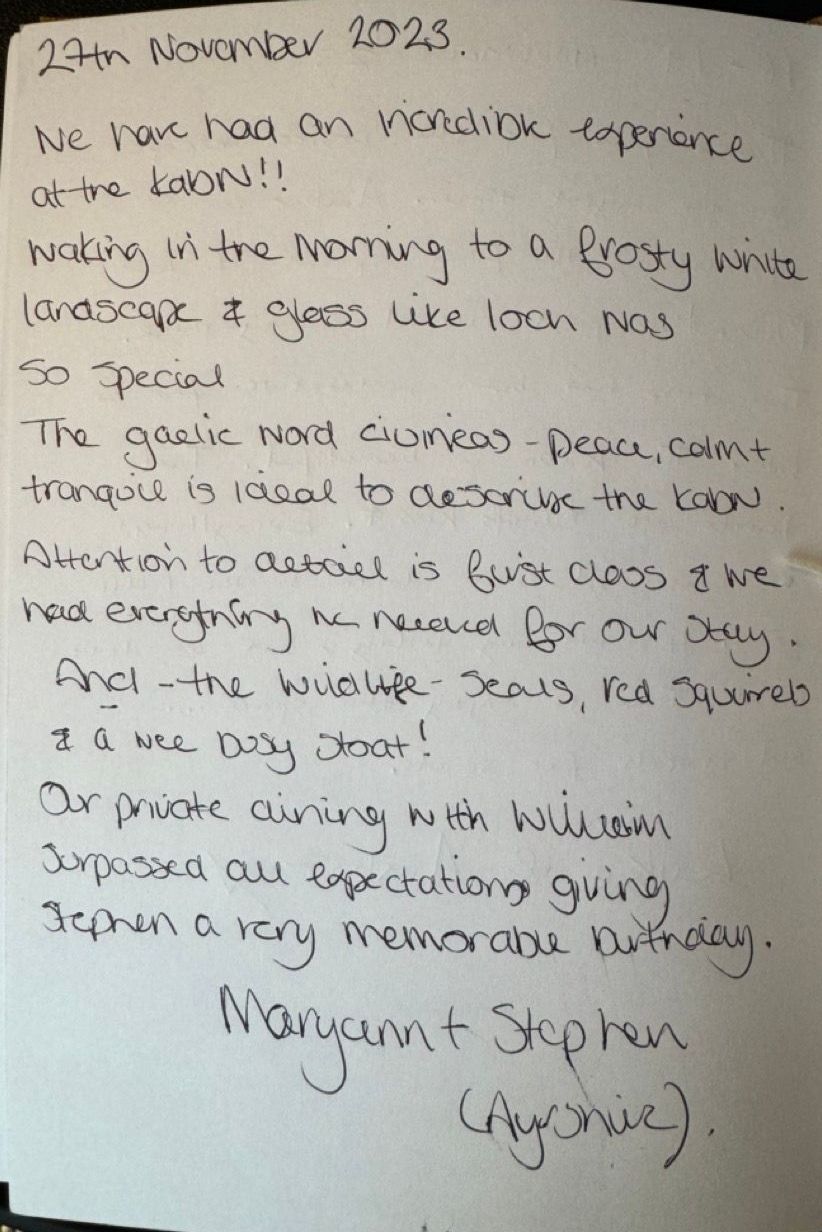 27th November 2023.
We have had an incredible experience
at the KabN!!
Waking in the morning to a frosty white
landscape & glass like loch was
so special
The gaelic word ciuineas - peace, calm +
tranquil is ideal to describe the KabN.
Attention to detail is first class & we
had everything we needed for our stay.
And - the wildlife - seals, red squirrels
& a wee busy stoat!
Our private dining with William
surpassed all expectations giving
Stephen a very memorable birthday.
Maryann + Stephen
(Ayrshire).